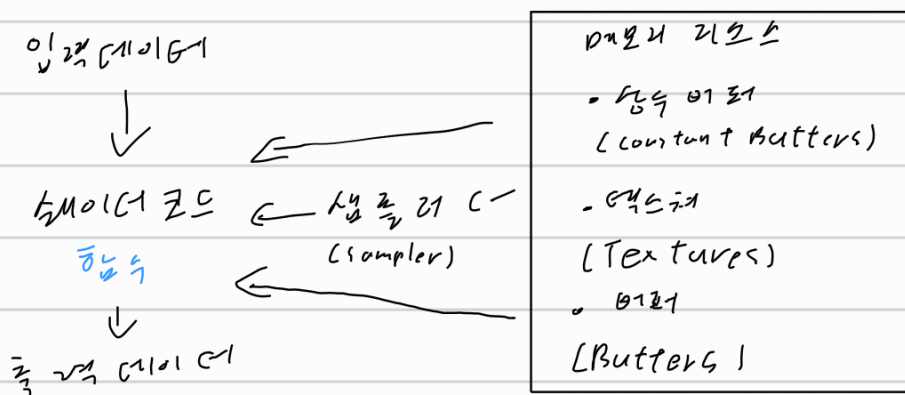 입력데이터
쉐이더 코드
함수
출력 데이터
샘플러
(sampler)
메모리 리소스
• 상수 버퍼
(constant Buffers)
• 텍스처
(Textures)
• 버퍼
(Buffers)